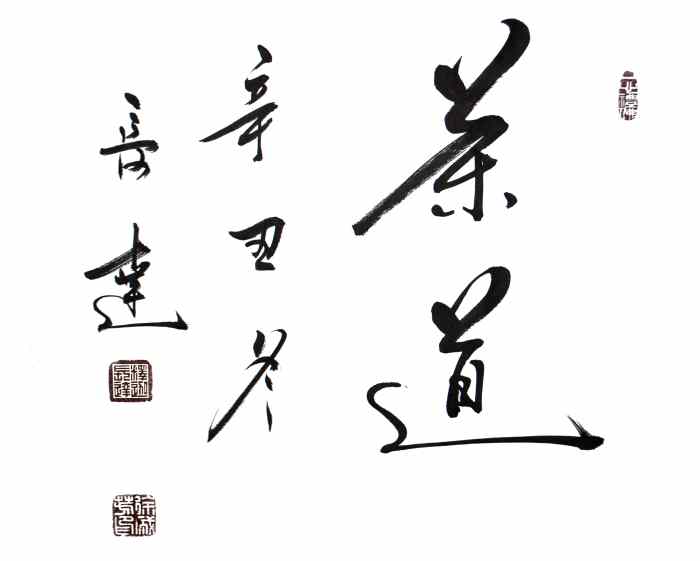 茶道
辛丑冬
長達